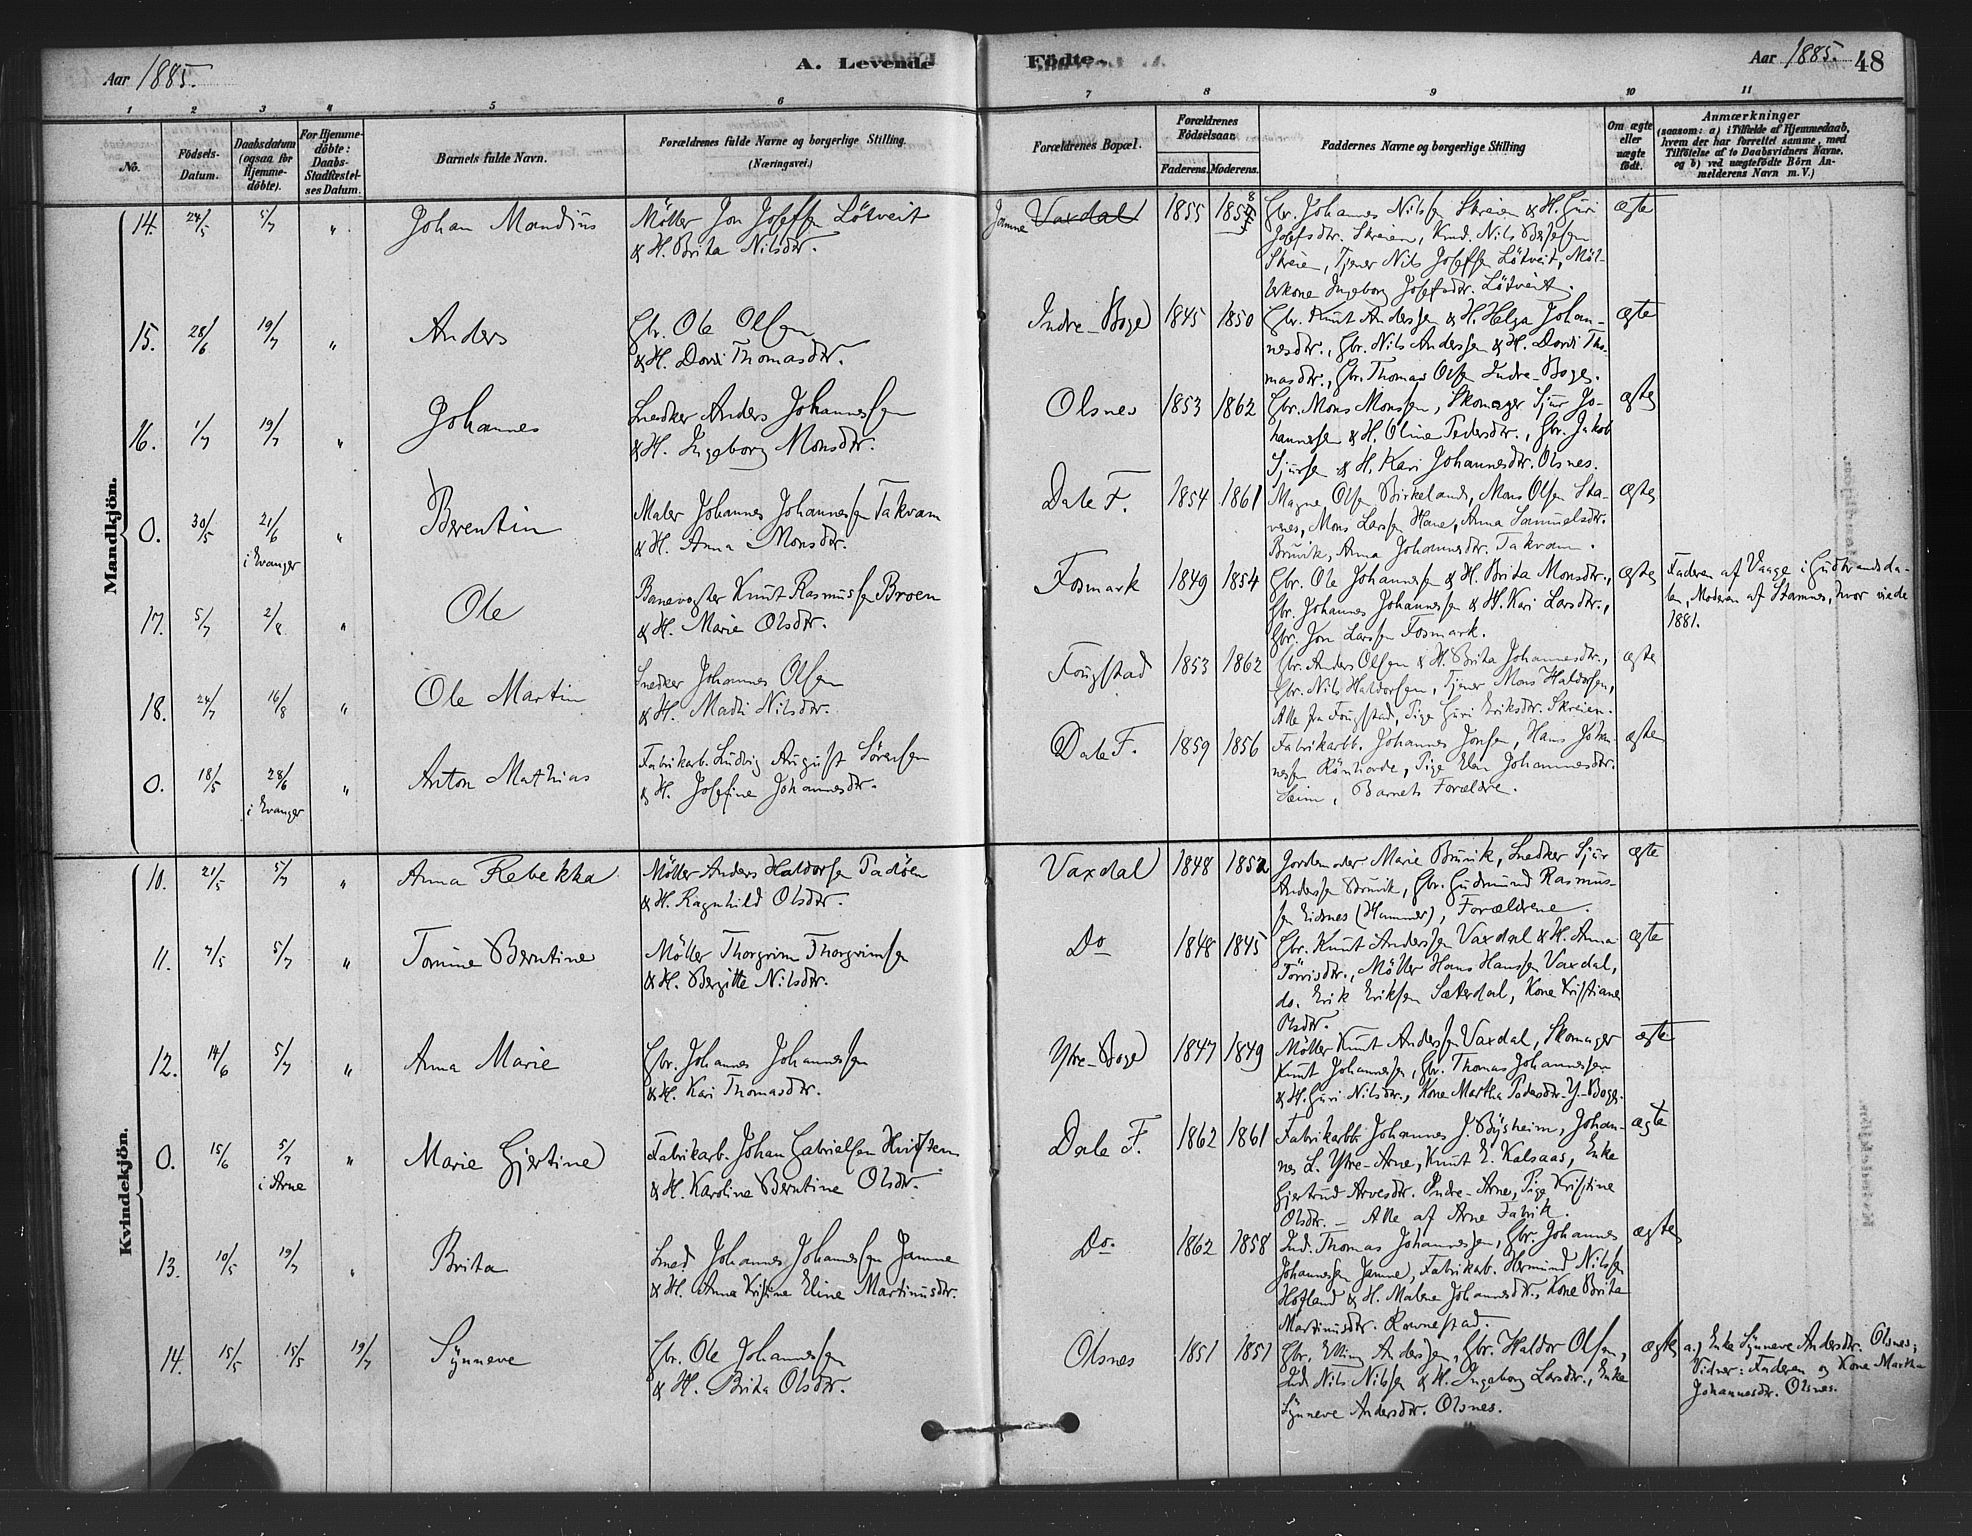 Aar 1885.
A. Levende
Födte.
Aar 1885. 48
1 2 3 4 5 6 7 8 9 10 11
No.
Födsels-Datum.
Daabsdatum (ogsaa for Hjemme-döbte).
For Hjemme-döbte: Daabs-Stadfæstel-ses Datum.
Barnets fulde Navn.
Forældrenes fulde Navne og borgerlige Stilling.
(Næringsvei.)
Forældrenes Bopæl.
Forældrenes Födselsaar.
Faderens. Moderens.
Faddernes Navne og borgerlige Stilling
Om ægte eller uægte födt.
Anmærkninger
(saasom: a) i Tilfælde af Hjemmedaab,
hvem der har forrettet samme, med
Tilföielse af to Daabsvidners Navne.
og b) ved uægtefödte Börn An-
melderens Navn m. V.)
Mandkjön.
14. 24/5 5/7 " Johan Mandius
Möller Jon Joseffsen Lötveit
& H. Brita Nilsdtr.
Jamne Vaxdal 1855 1858
Gbr. Johannes Nilssen Skreien & H. Guri
Josefsdtr. Skreien, Kmd. Nils
Skreien, Tjener Nils Joseffsen Lötveit, Möl-
lerkone Ingeborg Josefsdtr. Lötveit.
ægte
15. 28/6 19/7 " Anders
Gbr. Ole Olssen
& H. Dordi Thomasdtr.
Indre-Boge 1845 1850
Gbr. Knut Anderssen & H. Helga Johan-
nesdtr., Gbr. Nils Anderssen & H. Dordi Tho-
masdtr., Gbr. Thomas Olssen Indre-Boge.
ægte
16. 1/7 19/7 " Johannes
Snedker Anders Johannessen
& H. Ingeborg Monsdtr.
Olsnes 1853 1862
Gbr. Mons Monssen, Skomager Sjur Jo-
hannessen & H. Oline Pedersdtr., Gbr. Jakob
Sjurssen & H. Kari Johannesdtr. Olsnes.
ægte
0. 30/5 21/6 i Evanger " Berentin
Maler Johannes Johannessen Takvam
& H. Anna Monsdtr.
Dale F. 1854 1861
Magne Olsen Birkeland, Mons Olsen Sta-
venes, Mons Larssen Hane, Anna Samuelsdtr.
Bruvik, Anna Johannesdtr. Takvam.
ægte
17. 5/7 2/8 " Ole
Banevogter Knut Rasmussen Broen
& H. Marie Olsdtr.
Fosmark 1849 1854
Gbr. Ole Johannessen & H. Brita Monsdtr.,
Gbr. Johannes Johannessen & H. Kari Larsdtr.,
Gbr. Jon Larssen Fosmark.
ægte
Faderen af Vaage i Gudbrandsda-
len, Moderen af Stamnes, hvor viede
1881.
18. 24/7 16/8 " Ole Martin
Snedker Johannes Olssen
& H. Madli Nilsdtr.
Fougstad 1853 1862
Gbr. Anders Olssen & H. Brita Johannesdtr.,
Gbr. Nils Haldorssen, Tjener Mons Haldorssen,
Alle fra Fougstad, Pige Guri Eriksdtr. Skreien.
ægte
0. 18/5 28/6 i Evanger " Anton Mathias
Fabrikarb. Ludvig August Sörensen
& H. Josefine Johannesdtr.
Dale F. 1859 1856
Fabrikarbb. Johannes Jonssen, Hans Johan-
nessen Rönhovde, Pige Elen Johannesdtr.
Seim, Barnets Forældre.
ægte
Kvindekjön.
10. 21/5 5/7 " Anna Rebekka
Möller Anders Haldorsen Tadöen
& H. Ragnhild Olsdtr.
Vaxdal 1848 1852
Jordemoder Marie Bruvik, Snedker Sjur
Anderssen Bruvik, Gbr. Gudmund Rasmus-
sen Eidnes (Hammer), Forældrene.
ægte
11. 7/5 5/7 " Tomine Berntine
Möller Thorgrim Thorgrimsen
& H. Bergitte Nilsdtr.
Do 1848 1845
Gbr. Knut Anderssen Vaxdal & H. Anna
Törrisdtr., Möller Hans Hanssen Vaxdal,
do. Erik Eriksen Sæterdal, Kone Kristiane
Olsdtr.
ægte
12. 14/6 5/7 " Anna Marie
Gbr. Johannes Johannessen
& H. Kari Thomasdtr.
Ytre-Boge 1847 1849
Möller Knut Anderssen Vaxdal, Skomager
Knut Johannessen, Gbr. Thomas Johannessen
& H. Guri Nilsdtr., Kone Martha Pedersdtr. Y-Boge.
ægte
0. 15/6 5/7 i Arne " Marie Gjertine
Fabrikarb. Johan Gabrielsen Hvidsten
& H. Karoline Berntine Olsdtr.
Dale F. 1862 1861
Fabrikarbb. Johannes J. Bysheim, Johan-
nes L. Ytre-Arne, Knut E. Kalsaas, Enke
Gjertrud Arvesdtr. Indre-Arne, Pige Kristine
Olsdtr. – Alle af Arne Fabrik.
ægte
13. 10/5 19/7 " Brita
Smed Johannes Johannessen Jamne
& H. Anna Kristine Eline Martinusdtr.
Do. 1862 1858
Ind. Thomas Johannessen, Gbr. Johannes
Johannessen Jamne, Fabrikarb. Hermund Nilssen
Hofland & H. Malene Johannesdtr., Kone Brita
Martinusdtr. Ravnestad.
ægte
14. 15/5 15/5 19/7 Synneve
Gbr. Ole Johannessen
& H. Brita Olsdtr.
Olsnes 1851 1851
Gbr. Elling Anderssen, Gbr. Haldor Olssen,
Ind. Nils Nilssen & H. Ingeborg Larsdtr., Enke
Synneve Andersdtr. Olsnes.
ægte
a.) Enke Synneve Andersdtr. Olsnes;
Vidner: Faderen og Kone Martha
Johannesdtr. Olsnes.